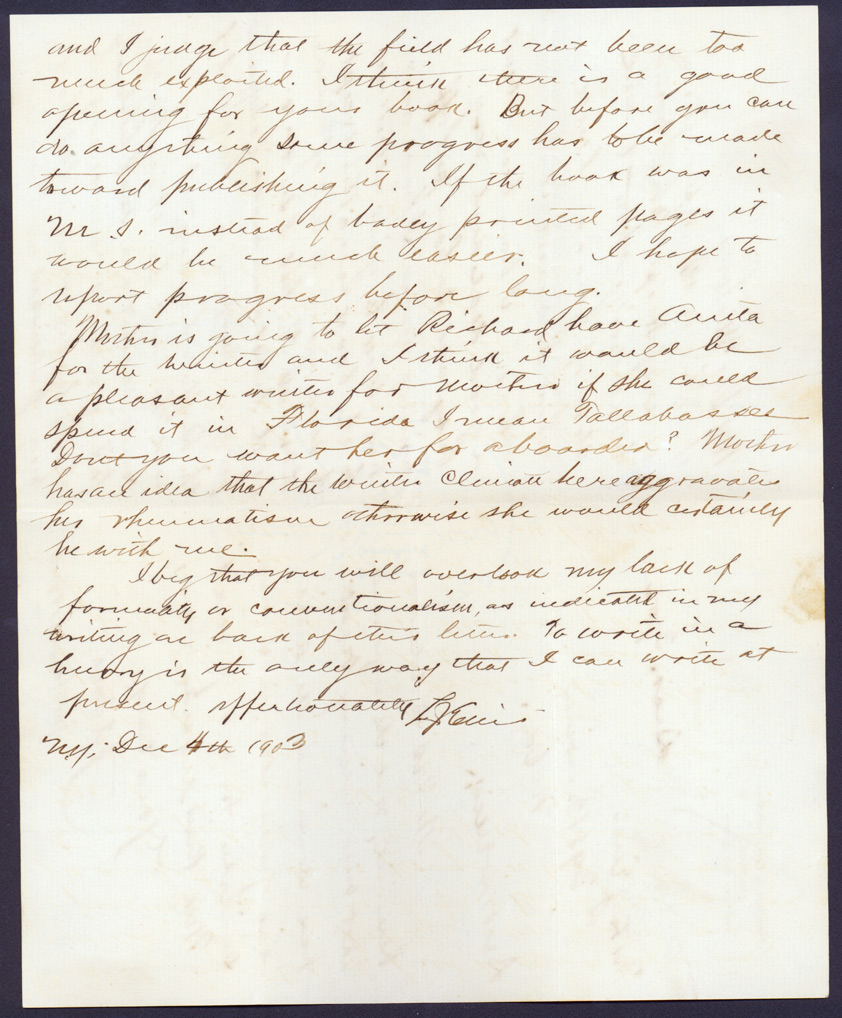 and I judge that the field has not been too
much exploited. I think there is a good
opening for your book. But before you can
do anything some progress has to be made
toward publishing it. If the book was in
M S. instead of badly printed pages it
would be much easier. I hope to
report progress before long.
Mother is going to let Richard have Anita
for the winter and I think it would be
a pleasant winter for mother if she could
spend it in Florida I mean Tallahassee
Dont you want her for a boarder? Mother
has an idea that the winter climate here aggravates
her rheumatism otherwise she would certainly
be with me.
I beg that you will overlook my lack of
formality or conventionalism, as indicated in my
writing on back of this letter. To write in a
hurry is the only way that I can write at
present. Affectionately
NY, Dec 4th 1903